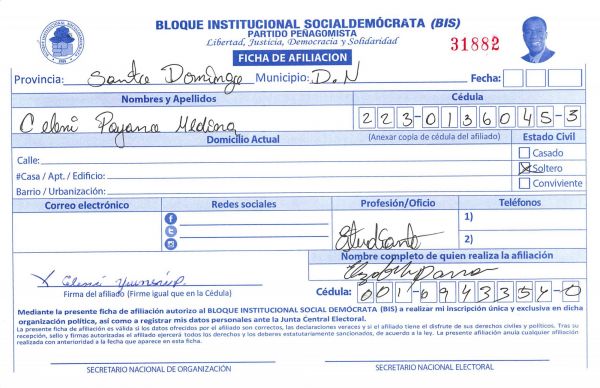 BLOQUE INSTITUCIONAL SOCIALDEMÓCRATA (BIS)
PARTIDO PEÑAGOMISTA
Libertad, Justicia, Democracia y Solidaridad
31882
FICHA DE AFILIACION
Provincia: Santo Domingo Municipio: D.N Fecha:
Nombres y Apellidos Cédula
Celeni Payana Medina 223-0136045-3
Domicilio Actual (Anexar copia de cédula del afiliado) Estado Civil
Calle: Casado
#Casa / Apt. / Edificio: Soltero
Barrio / Urbanización: Conviviente
Correo electrónico Redes sociales Profesión/Oficio Teléfonos
1)
Estudiante 2)
Nombre completo de quien realiza la afiliación
X Celeni
Firma del afiliado (Firme igual que en la Cédula) Cédula: 001-0943354-0
Mediante la presente ficha de afiliación autorizo al BLOQUE INSTITUCIONAL SOCIAL DEMÓCRATA (BIS) a realizar mi inscripción única y exclusiva en dicha
organización política, así como a registrar mis datos personales ante la Junta Central Electoral.
La presente ficha de afiliación es válida si los datos ofrecidos por el afiliado son correctos, las declaraciones veraces y si el afiliado tiene el disfrute de sus derechos civiles y políticos. Tras su
recepción, sello y firmas autorizadas el afiliado ejercerá todos los derechos y los deberes estatutariamente sancionados, de acuerdo a la ley. La presente afiliación anula cualquier afiliación
realizada con anterioridad a la fecha que aparece en esta ficha.
SECRETARIO NACIONAL DE ORGANIZACIÓN SECRETARIO NACIONAL ELECTORAL